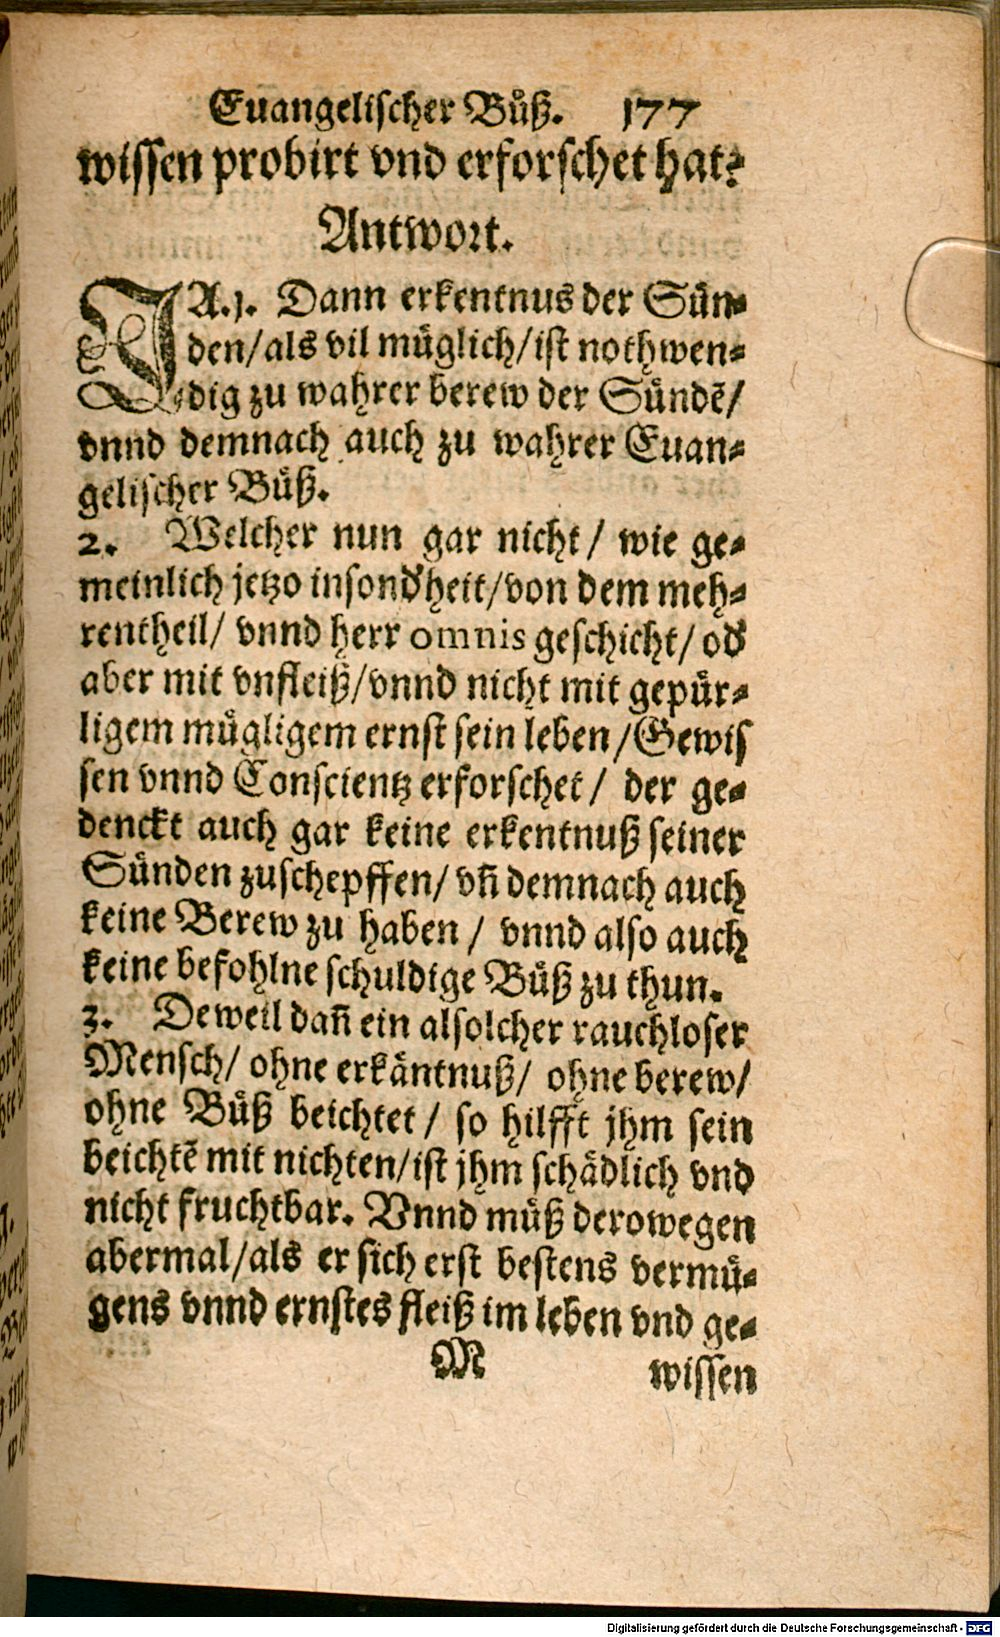 Euangelischer Bůß. 177
wissen probirt vnd erforschet hat?
Antwort.
JA. 1. Dann erkentnus der Sün-
den/als vil müglich/ist nothwen-
dig zu wahrer berew der Sündẽ/
vnnd demnach auch zu wahrer Euan-
gelischer Bůß.
2. Welcher nun gar nicht/ wie ge-
meinlich jetzo insondʼheit/von dem meh-
rentheil/ vnnd herr omnis geschicht/ odʼ
aber mit vnfleiß/vnnd nicht mit gepür-
ligem mügligem ernst sein leben/Gewis
sen vnnd Conscientz erforschet/ der ge-
denckt auch gar keine erkentnuß seiner
Sünden zuschepffen/ vñ demnach auch
keine Berew zu haben/ vnnd also auch
keine befohlne schuldige Bůß zu thun.
3. Deweil dañ ein alsolcher rauchloser
Mensch/ ohne erkäntnuß/ ohne berew/
ohne Bůß beichtet/ so hilfft jhm sein
beichtẽ mit nichten/ist jhm schädlich vnd
nicht fruchtbar. Vnnd můß derowegen
abermal/als er sich erst bestens vermü-
gens vnnd ernstes fleiß im leben vnd ge-
M wissen
Digitalisierung gefördert durch die Deutsche Forschungsgemeinschaft - DFG